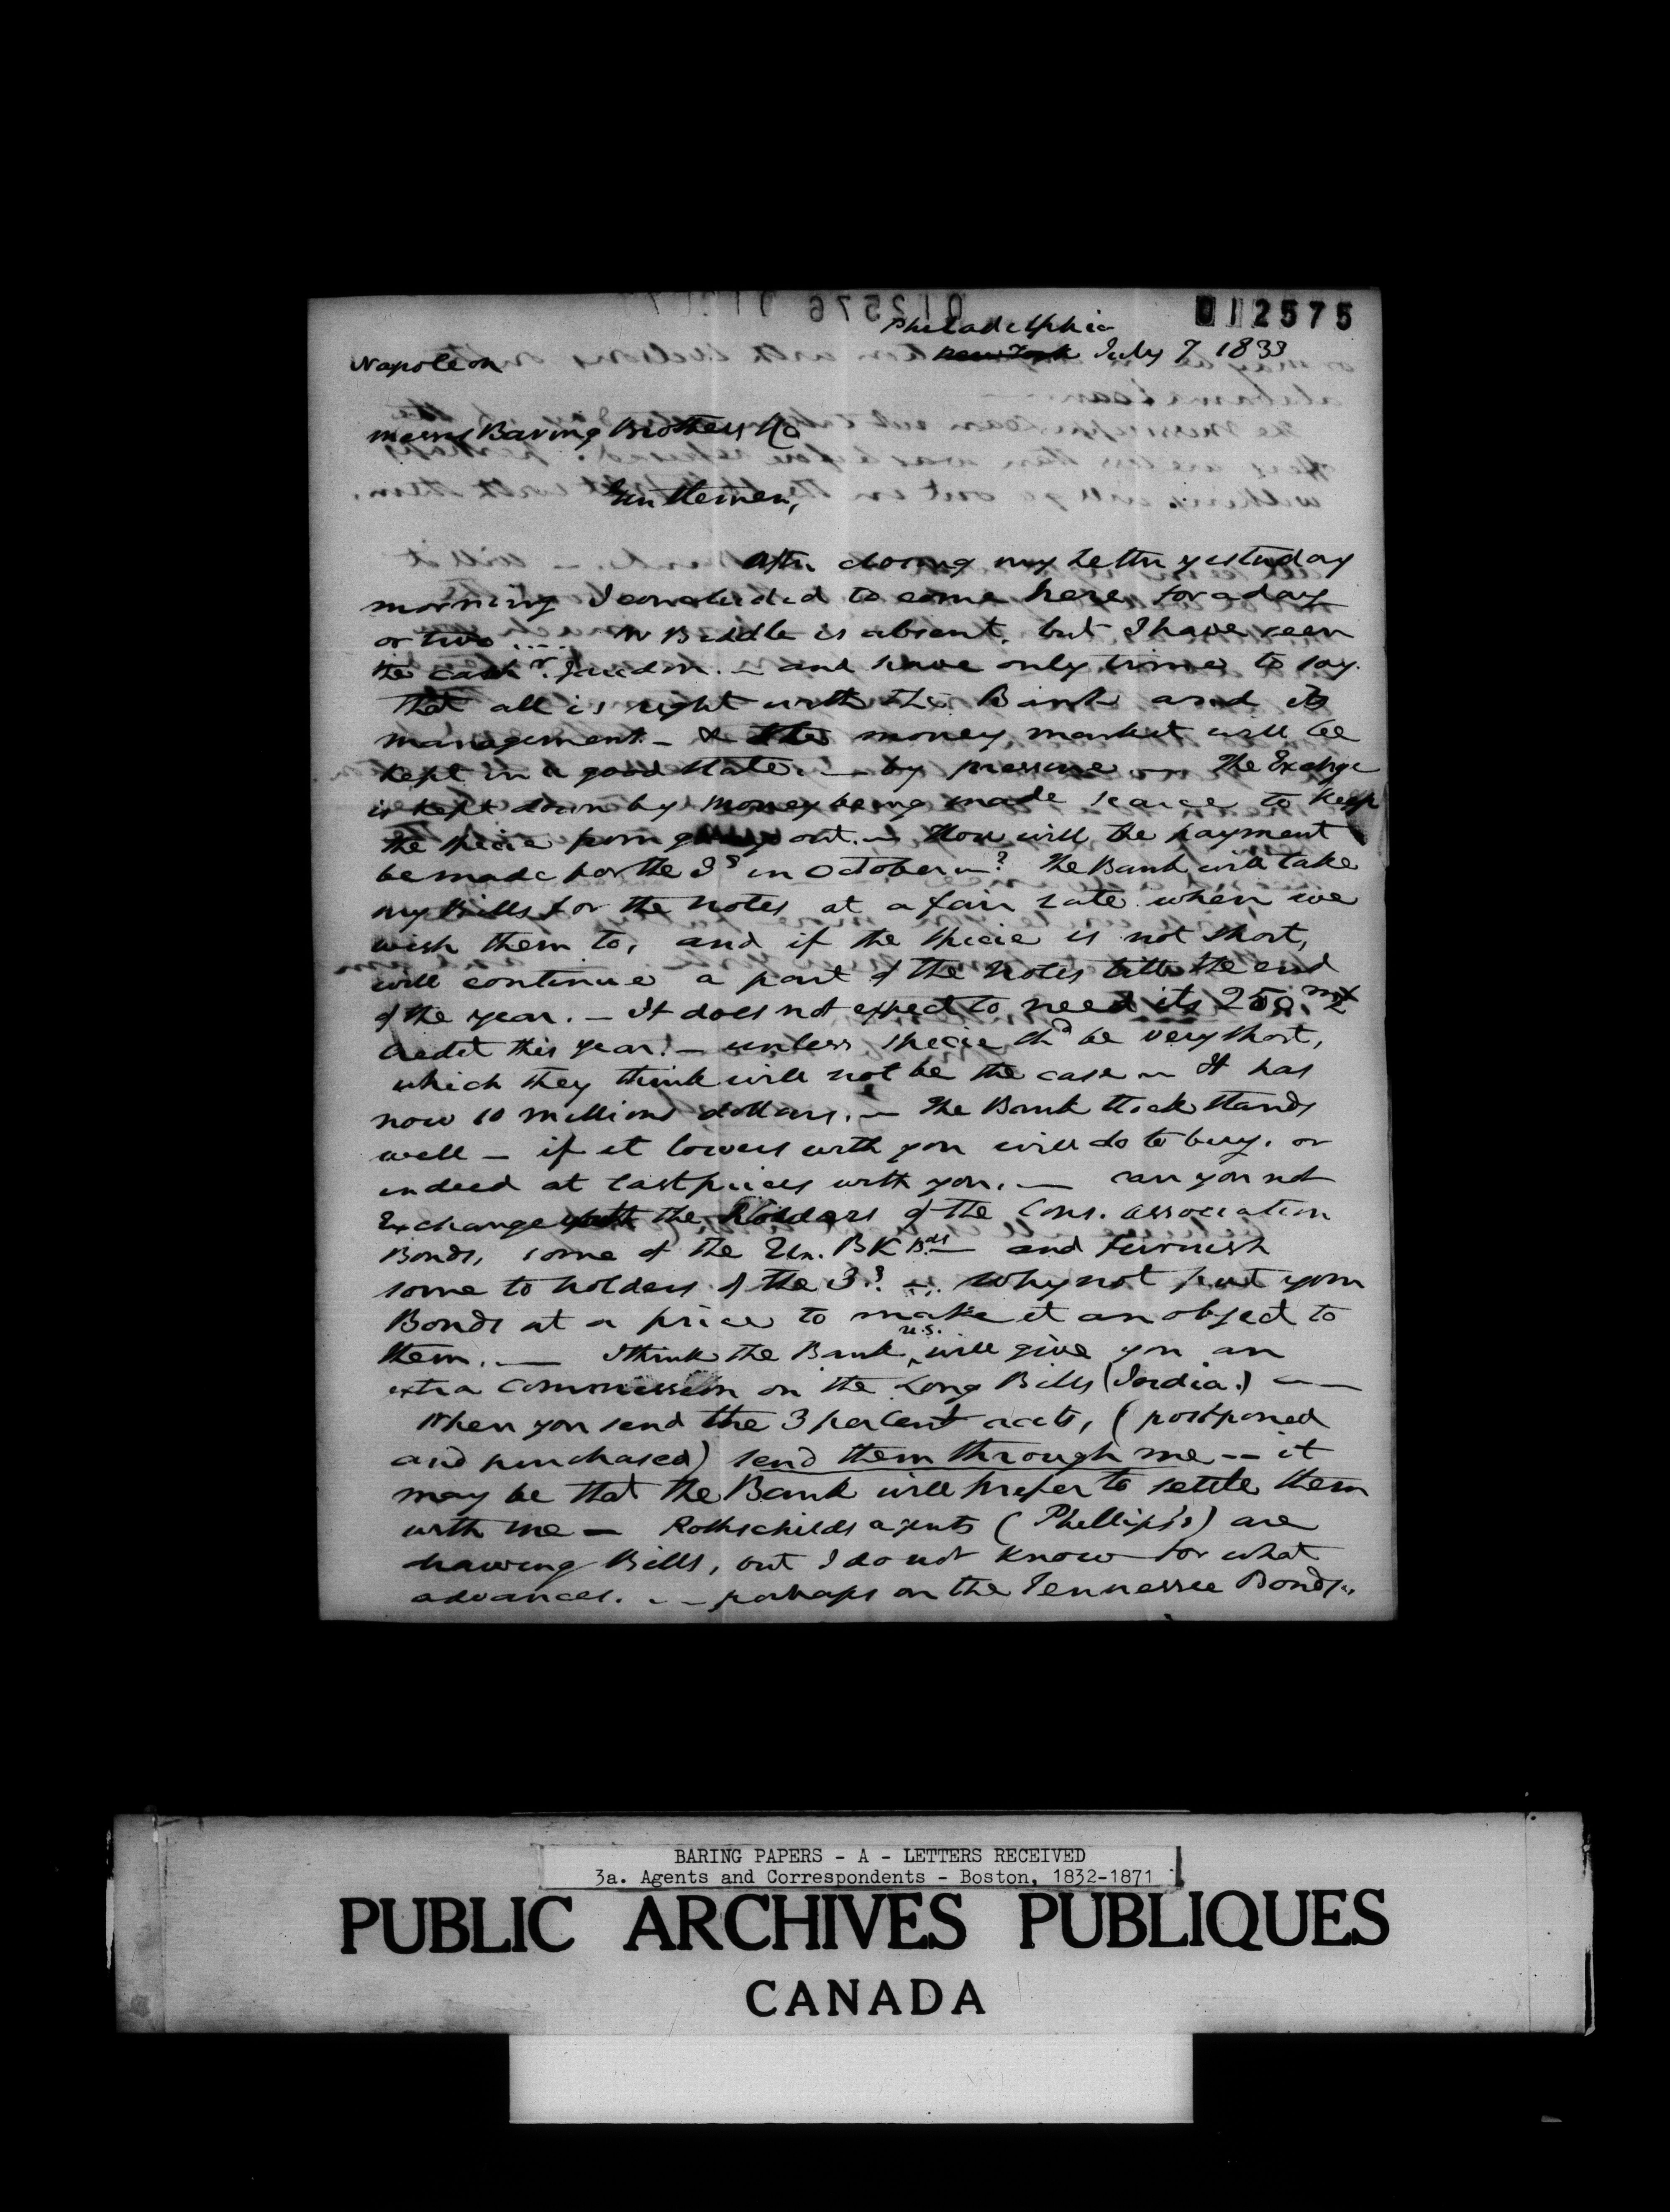 012575
Philadelphia
Napoleon
New York July 7 1833
Messrs Baring Brothers & Co
Gentlemen,
After closing my letter yesterday
morning I concluded to come here for a day
or two .... Mr Biddle is absent, but I have seen
the Cashr. Jaudon. — and have only time to say
that all is right with the Bank and its
management — & the money market will be
kept in a good state. — by pressure — The Exchge
is kept down by money being made scarce to keep
the specie from going out. — How will the payment
be made for the 3s in October —? The Bank will take
my Bills for the notes at a fair rate when we
wish them to, and if the specie is not short,
will continue a part of the notes till the end
of the year. — It does not expect to need its 250
credit this year. — unless specie shd be very short,
which they think will not be the case — It has
now 10 millions dollars. — The Bank Stock stands
well — if it lowers with you will do to buy. or
indeed at last prices with you. — can you not
Exchange with the Holders of the Cons. association
Bonds, some of the Un. BK Bds — and furnish
some to holders of the 3s. — why not put your
Bonds at a price to make it an object to
them. — I think the Bank U.S. will give you an
extra commission on the Long Bills (India.) —
When you send the 3 per Cent accts, (postponed
and purchased) send them through me -- it
may be that the Bank will prefer to settle them
with me — Rothschilds agents (Phillips's) are
drawing Bills, but I do not know for what
advances. . — perhaps on the Tennessee Bonds.
BARING PAPERS - A - LETTERS RECEIVED
3a. Agents and Correspondents - Boston, 1832-1871
PUBLIC ARCHIVES PUBLIQUES
CANADA